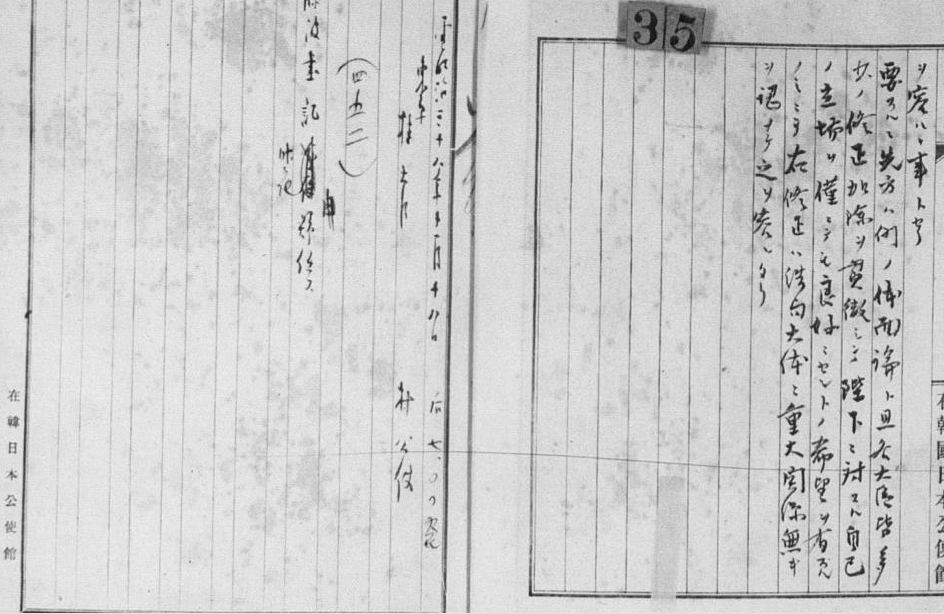 35
ヲ容ルヽ事トセリ
要スルニ先方ハ例ノ体面論ト且各大臣皆多
少ノ修正加除ヲ貫徹シテ陛下ニ対スル自己
ノ立場ヲ僅ニテモ良好ニセントノ希望ヲ有スル
ノミニテ右修正ハ結局大体ニ重大関係無キ
ヲ認メテ之ヲ容レタリ
在韓國日本公使館
明治三十八年十一月十八日 后七、〇〇発
東京
桂大臣 林公使
(四五二)
書記
在韓日本公使館